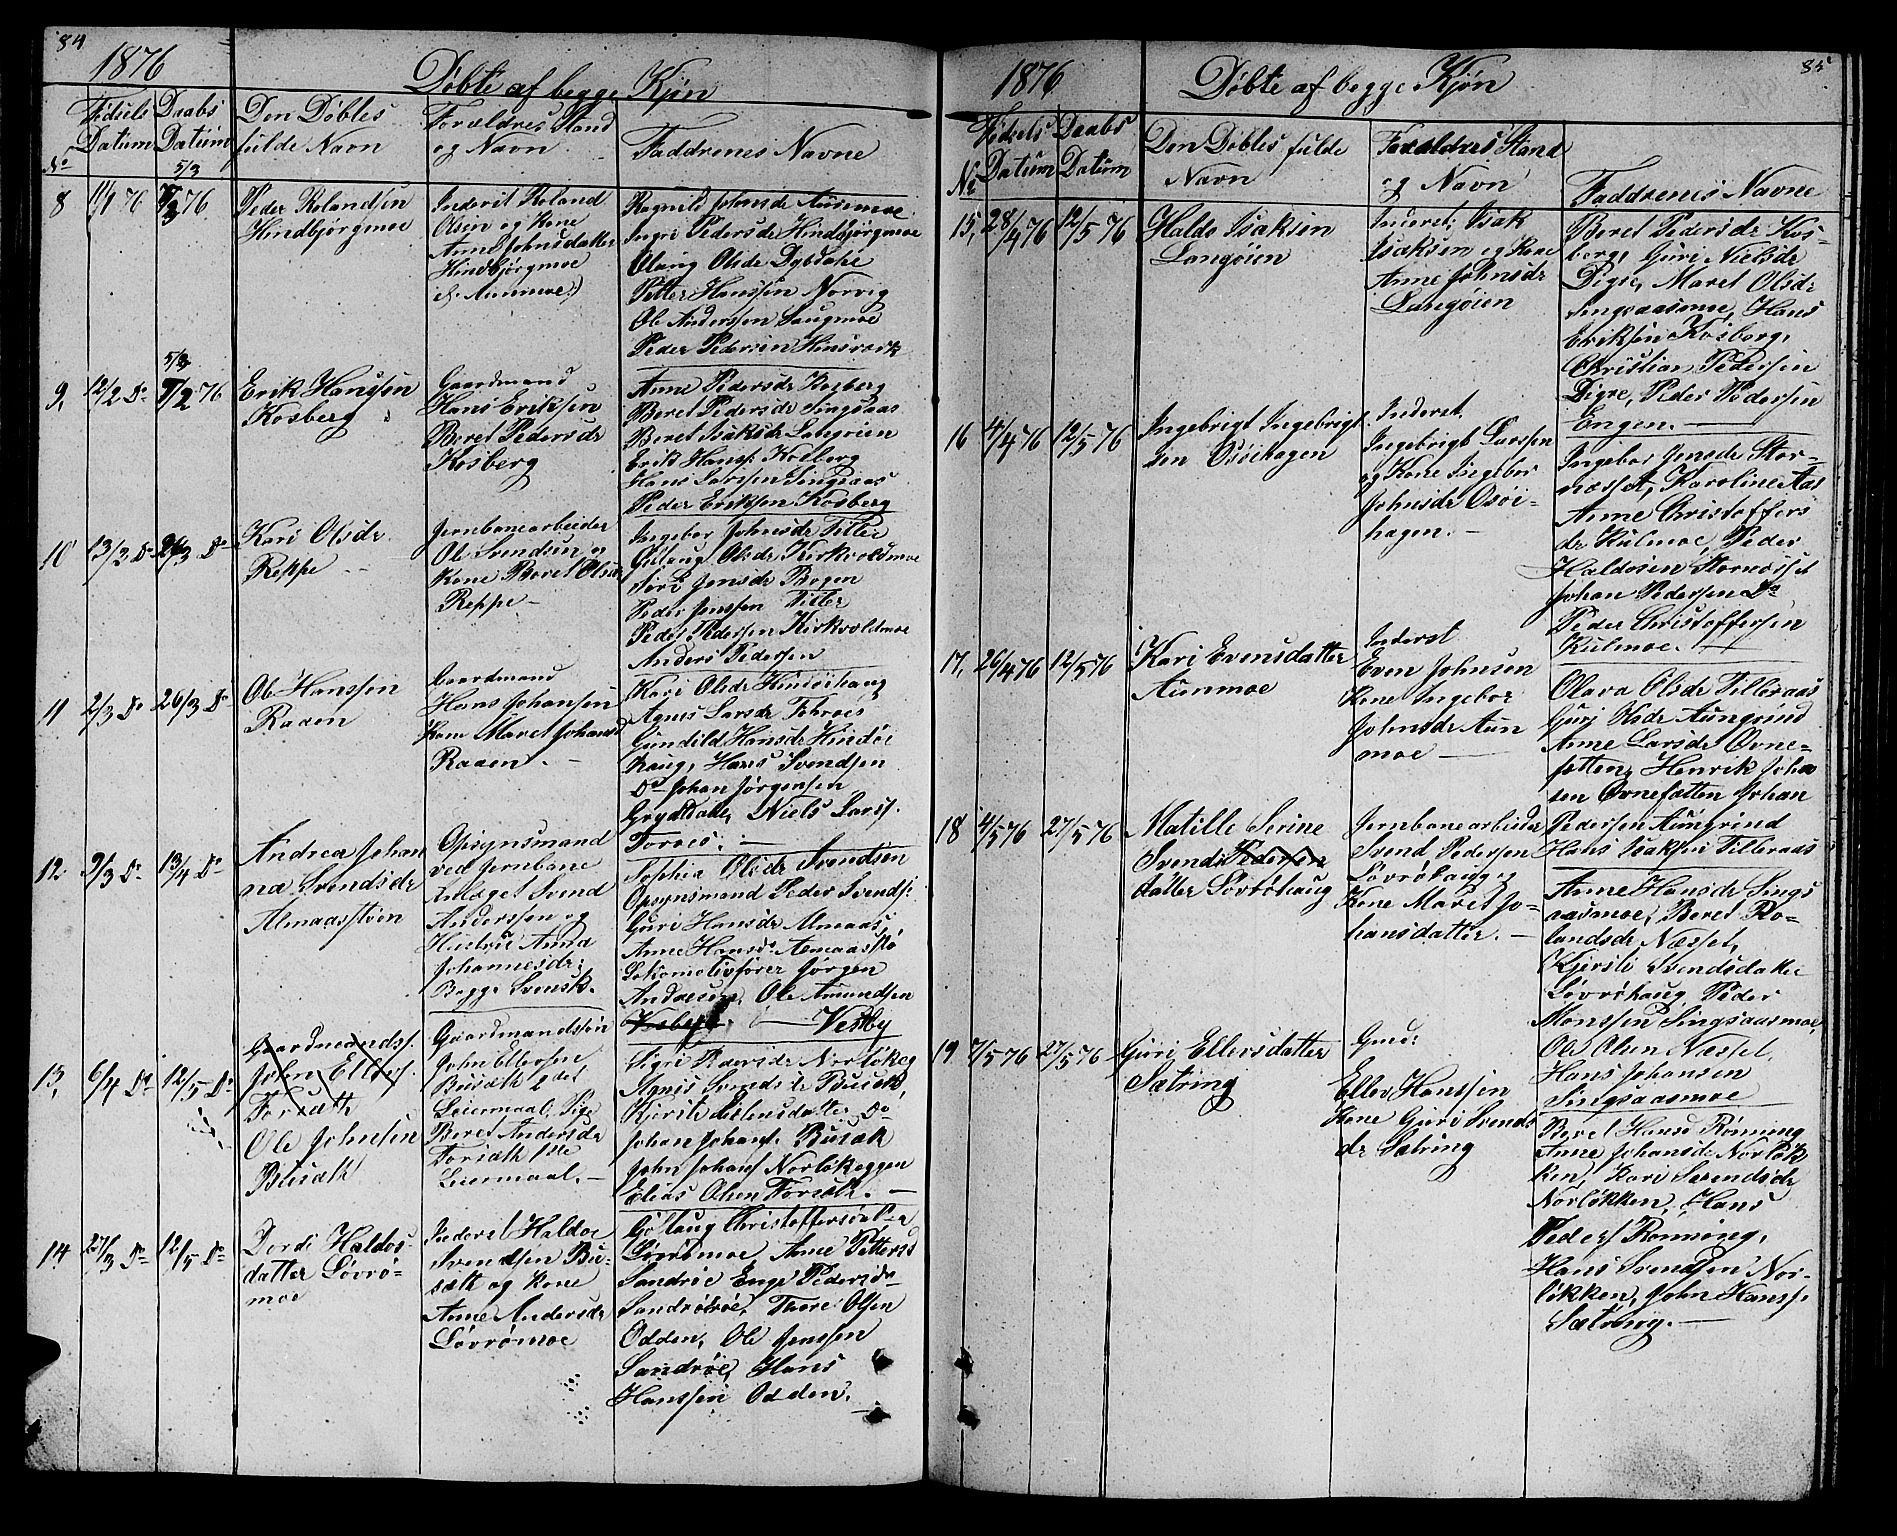 84
1876
Døbte af begge Kjøn
No
Fødsels Datum
Daabs Datum
Den Døbtes fulde Navn
Forældres Stand og Navn
Faddrenes Navne
8
11/1 76
5/3
76.
Peder Rolandsen
Hindbjørgmoe
Inderst Roland
Olsen og Kone
Anne Johnsdatter
Hindbjørgmoe
Ragnild Johnsdr Aunmoe
Ingri Pedersdr Hindbjørgmoe
Olaug Olsdr Dybdahl
Petter Hanssen Norvig
Ole Anderssen Haugmoe
Peder Pedersen
9.
12/2 Do
5/3
76
Erik Hanssen
Kosberg
Gaardmand
Hans Eriksen
Beret Pedersdr
Kosberg
Anne Pedersdr Kosberg
Beret Pedersdr Singsaas
Beret Isaksdr Langøien
Erik Hanss: Kosberg
Hans Larssen Singsaas
Peder Eriksen Kosberg
10
13/2 Do
26/3 Do
Kari Olsdr
Reppe
Jernbanearbeider
Ole Svendsen og
Kone Beret Olsdr
Reppe
Ingebor Johnsdr Tiller
Gulaug Olsdr Kirkvoldmoe
Siri Jensdr Bogen
Peder Jenssen Tiller
Peder Pedersen Kirkvoldmoe
Anders Pedersen
11
2/3 Do
26/3 Do
Ole Hanssen
Raaen
Gaardmand
Hans Johansen
Kone Maret Johansd
Raaen.
Kari Olsdr Hindørhaug
Agnes Larsdr Forraes
Gunild Hansdr Hindør
haug, Hans Svendsen
Do Johan Jørgensen
Grytdal, Niels Larss.
Foraes.
12.
9/3 Do
13/4 Do
Andrea Johan
na Svendsdr
Almaasstrøn
Opsynsmand
ved Jernbane
Anlæget Svend
Anderssen og
Hustrue Anna
Johannesdr:
Begge Svensk.
Sophia Olsdr Svendsen
Opsynsmand Peder Svends:
Guri Hansdr Almaas,
Anne Hansdr Almaasstrø
Lokomotivfører Jørgen
Andresen, Ole Amundsen
Vestby
13.
6/4 Do
12/5 Do
Gaardmands:
John Ellefs:
Forsæth
Ole Johnsen
Busæth
Gaardmandssøn
John Ellefsen
Busæth 2det
Leiermaal, Pige
Beret Andersdr
Forsæth 1ste
Leiermaal.
Sigri Pedersdr Norløkeg
Agnes Svendsdr Busæth,
Kjersti Estensdatter Do
Johan Johans. Busæk
John Johans. Norløkeggen
Elias Olsen Forsæth.
14
27/3 Do
12/5 Do
Dordi Haldos
datter Løvrø-
moe
Inderst Haldoe
Svendsen Bu-
sæth og Kone
Anne Andersdr
Løvrømoe
Gølaug Christoffersdtr
Løvrømoe Anne Pettersd
Sandrøe Enge Pedersdr
Sandrøe, Thore Olsen
Odden, Ole Jenssen
Sandrøe, Hans
Hanssen Odden.
85
1876
Døbte af begge Kjøn
No
Fødsels Datum
Daabs Datum
Den Døbtes fulde
Navn
Forældres Stand
og Navn
Faddrenes Navne
15.
28/4 76
12/5 76
Haldo Isaksen
Langøien
Inderst, Isak
Isaksen og Kone
Anne Johnsdr
Langøien
Beret Pedersdr Kos-
berg, Guri Nielsdr
Digre, Maret Olsdr
Singsaasmoe, Hans
Eriksen Kosberg,
Christian Pedersen
Digre, Peder Pedersen
Engen.
16
4/4 76
12/5 76
Ingebrigt Ingebrigt
sen Osøihagen
Inderst,
Ingebrigt Larssen
og Kone Ingebor
Johnsdr Osøi-
hagen.
Ingebor Jensdr Stor-
næsset, Karoline Aas
Anne Christoffers
dr Kulmoe, Peder
Haldosen Stornæsset
Johan Pedersen Do
Peder Christoffersen
Kulmoe.
17.
26/4 76
12/5 76
Kari Evensdatter
Aunmoe
Inderst
Even Johnsen
Kone Ingebor
Johnsdr Aun
moe
Olava Olsdr Tilleraas
Guri Olsdr Aungrind
Anne Larsdr Ovne-
fatten, Henrik Johan
sen Ovnefatten Johan
Pedersen Aungrind
Hans Isaksen Tilleraas
18
4/5 76
27/5 76
Matille Serine
Svends Pedersen
datter Løvrøhaug
Jernbanearbeider
Svend Pedersen
Løvrøhaug og
Kone Maret Jo-
hansdatter.
Anne Hansdr Sings
aasmoe, Beret Ro-
landsdr Næsset,
Kjersti Svendsdatter
Løvrøhaug Peder
Monssen Singsaasmoe,
Ole Olsen Næsset,
Hans Johansen
Singsaasmoe
19
7/5 76
27/5 76
Guri Ellersdatter
Sætring
Gmd:
Eller Hanssen
Kone Guri Svends
dr Sætring
Beret Hansd Rønning
Anne Johansdr Norløk
ken, Kari Svendsdr
Norløkken, Hans
Peders Rønning,
Hans Svendsen Nor-
løkken, John Hanss.
Sætring.